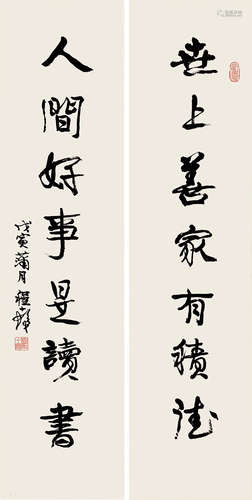 世上善家有積德
人間好事是讀書
戊寅蒲月程峰